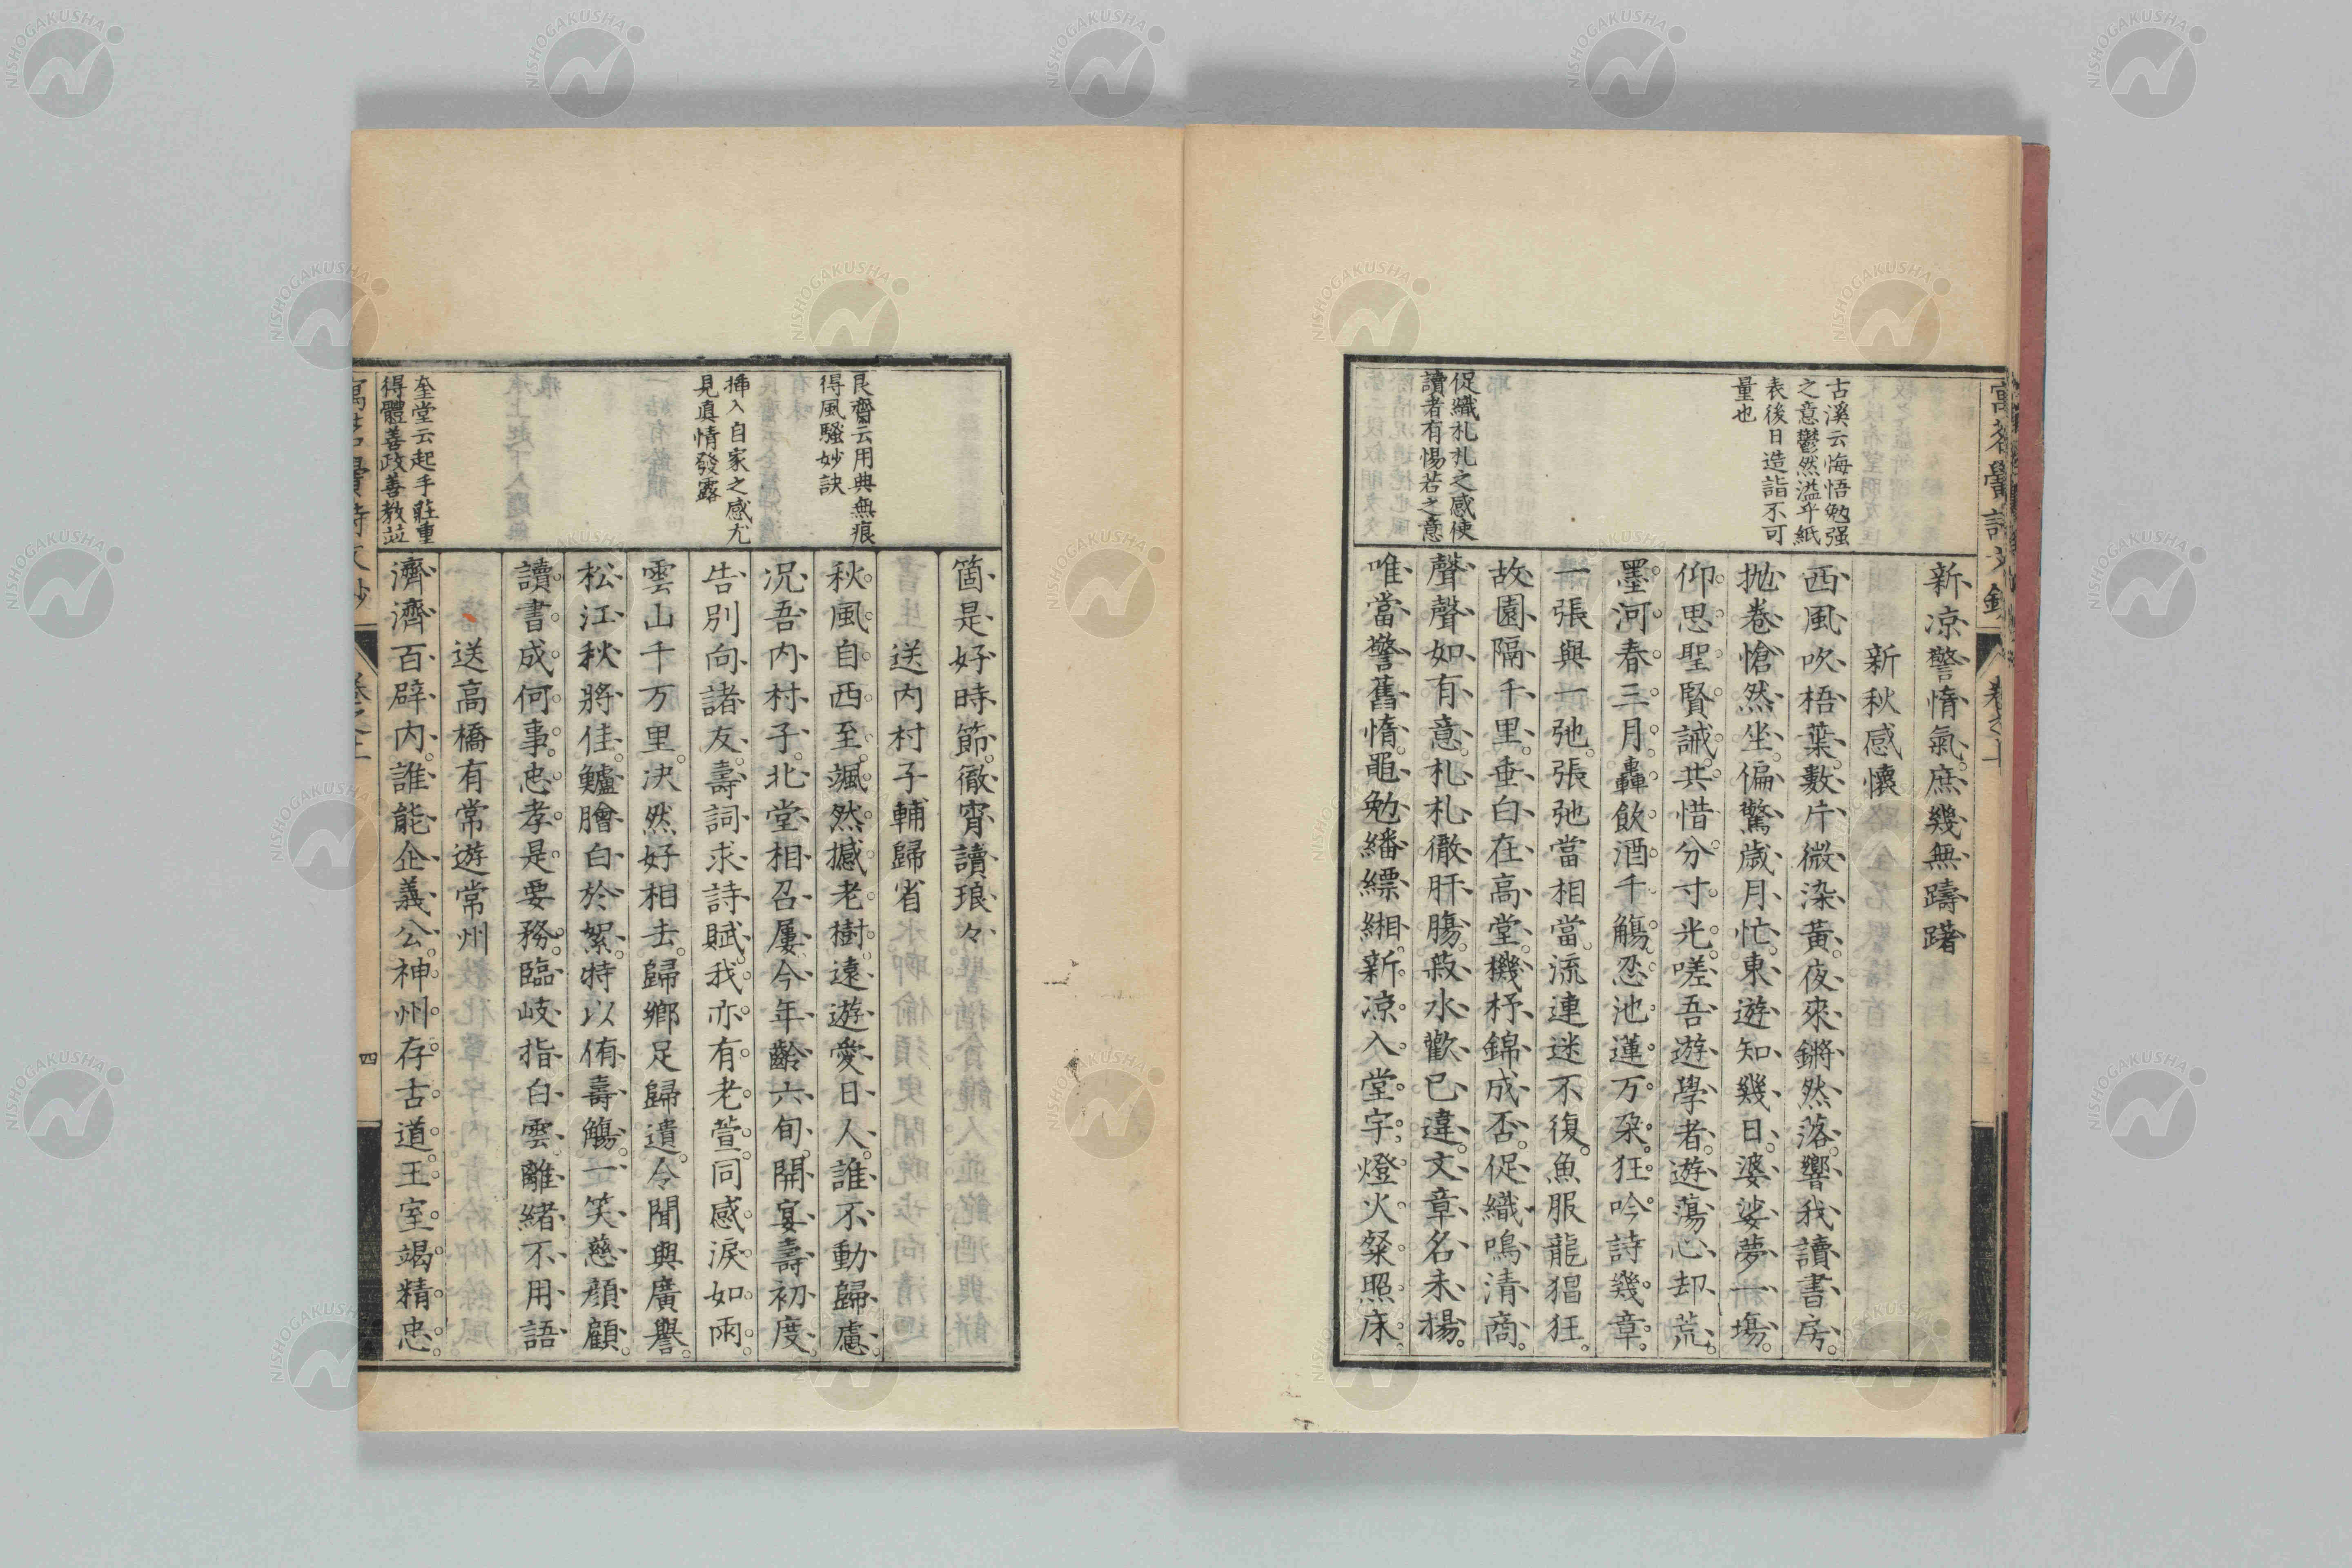 新凉警惰氣庶幾無躊躇
新秋感懷
西風吹梧葉數片微染黃夜來鏘然落響我讀書房
抛卷愴然坐偏驚歲月忙東遊知幾日婆娑夢一塲
仰思聖賢誡共惜分寸光嗟吾遊學者遊蕩心却荒
墨河春三月轟飲酒千觴忍池蓮万朶狂吟詩幾章
一張與一弛張弛當相當流連迷不復魚服龍猖狂
故園隔千里垂白在高堂機杼錦成否促織鳴清商
聲聲如有意札札徹肝膓菽水歡已違文章名未揚
唯當警舊惰黽勉繙縹緗新凉入堂宇燈火粲照床
古溪云悔悟勉强
之意鬱然溢乎紙
表後日造詣不可
量也
促織札札之感使
讀者有惕若之意
箇是好時節徹宵讀琅々
送内村子輔歸省
秋風自西至颯然撼老樹遠遊愛日人誰不動歸慮
况吾内村子北堂相召屢今年齡六旬開宴壽初度
告別向諸友壽詞求詩賦我亦有老萱同感涙如雨
雲山千万里决然好相去歸鄉足歸遺令聞與廣譽
松江秋將佳鱸膾白於絮特以侑壽觴一笑慈顔顧
讀書成何事忠孝是要務臨岐指白雲離緒不用語
送高橋有常遊常州
濟濟百辟内誰能企義公神州存古道王室竭精忠
艮齋云用典無痕
得風騷妙訣
挿入自家之感尤
見眞情發露
奎堂云起手莊重
得體善政善教竝
四
NISHOGAKUSHA